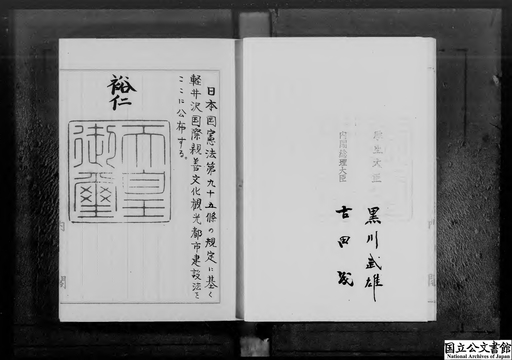 厚生大臣 黒川武雄
内閣総理大臣 吉田茂
日本国憲法第九十五條の規定に基く
軽井沢国際親善文化観光都市建設法を
ここに公布する。
裕仁
天皇
御璽
内閣
国立公文書館
National Archives of Japan